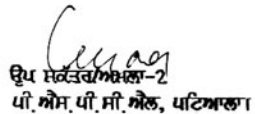 ਉਪ ਸਕੱਤਰ/ਅਮਲਾ-2
ਪੀ.ਐਸ.ਪੀ.ਸੀ.ਐਲ, ਪਟਿਆਲਾ।